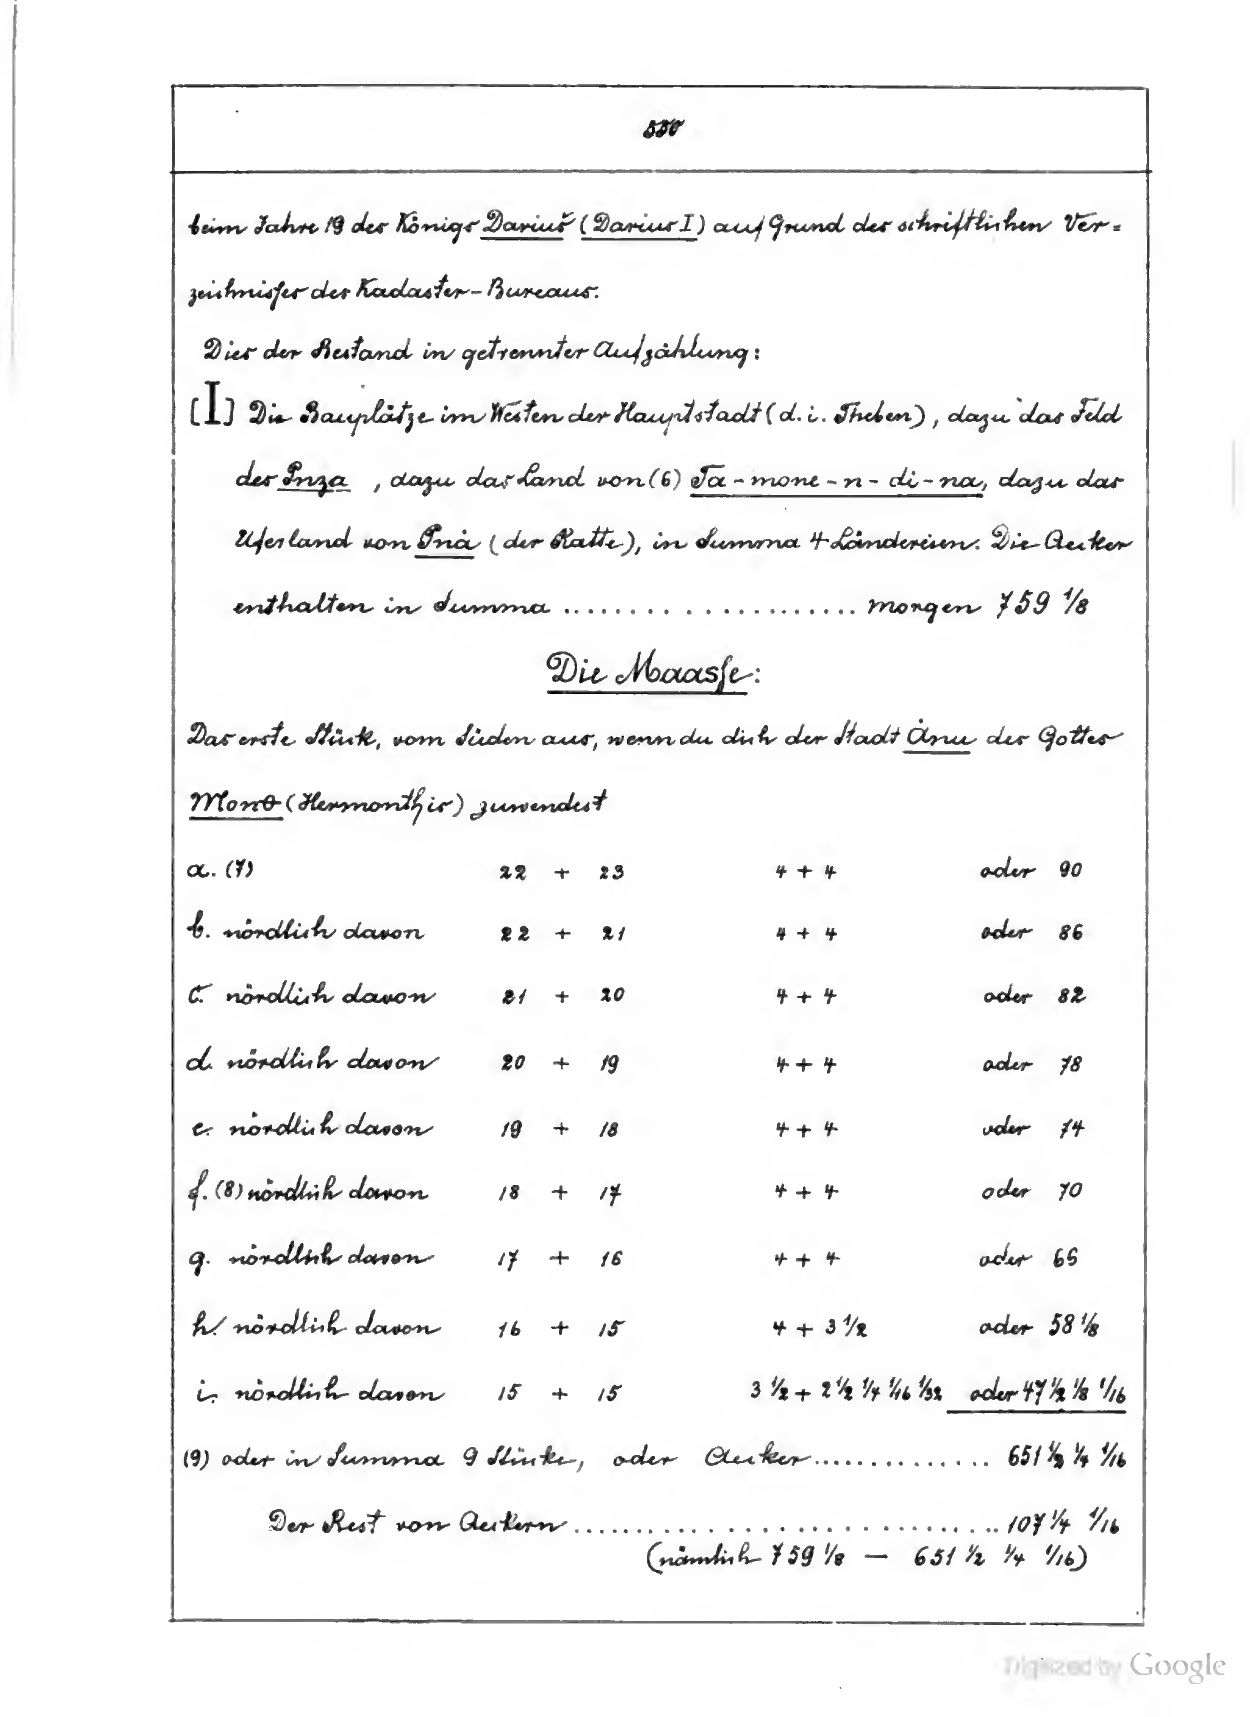 550
beim Jahre 19 des Königs Darius (Darius I) auf Grund des schriftlichen Ver=
zeichnisses des Kadaster-Bureaus.
Dies der Bestand in getrennter Aufzählung:
[I] Die Bauplätze im Westen der Hauptstadt (d. i. Theben), dazu das Feld
des Pnza, dazu das Land von (6) Ta-mone-n-di-na, dazu das
Uferland von Pnȧ (der Ratte), in Summa 4 Ländereien. Die Aecker
enthalten in Summa ...................... morgen 759 1/8
Die Maasse:
Das erste Stück, vom Süden aus, wenn du dich der Stadt Ȧnu des Gottes
Monθ (Hermonthis) zuwendest
a. (7) 22 + 23 4 + 4 oder 90
b. nördlich davon 22 + 21 4 + 4 oder 86
c. nördlich davon 21 + 20 4 + 4 oder 82
d. nördlich davon 20 + 19 4 + 4 oder 78
e. nördlich davon 19 + 18 4 + 4 oder 74
f. (8) nördlich davon 18 + 17 4 + 4 oder 70
g. nördlich davon 17 + 16 4 + 4 oder 66
h. nördlich davon 16 + 15 4 + 3 1/2 oder 58 1/8
i. nördlich davon 15 + 15 3 1/2 + 2 1/2 1/4 1/16 1/32 oder 47 1/2 1/8 1/16
(9) oder in Summa 9 Stücke, oder Aecker .............. 651 1/2 1/4 1/16
Der Rest von Aeckern .............................. 107 1/4 1/16
(nämlich 759 1/8 — 651 1/2 1/4 1/16)
Digitized by Google